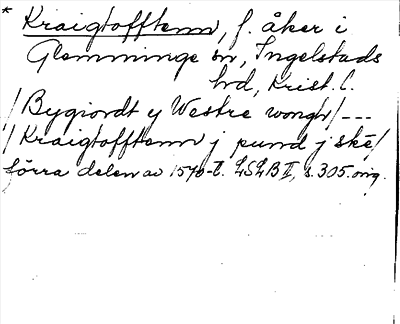 * Kraigtofftenn, f. åker i
Glemminge sn, Ingelstads
hd, Krist. l.
/Bygiordt y Westre wongh/---
/Kraigtofftenn j pund j skē/
förra delen av 1570-t. LSLB II, s. 305. orig.